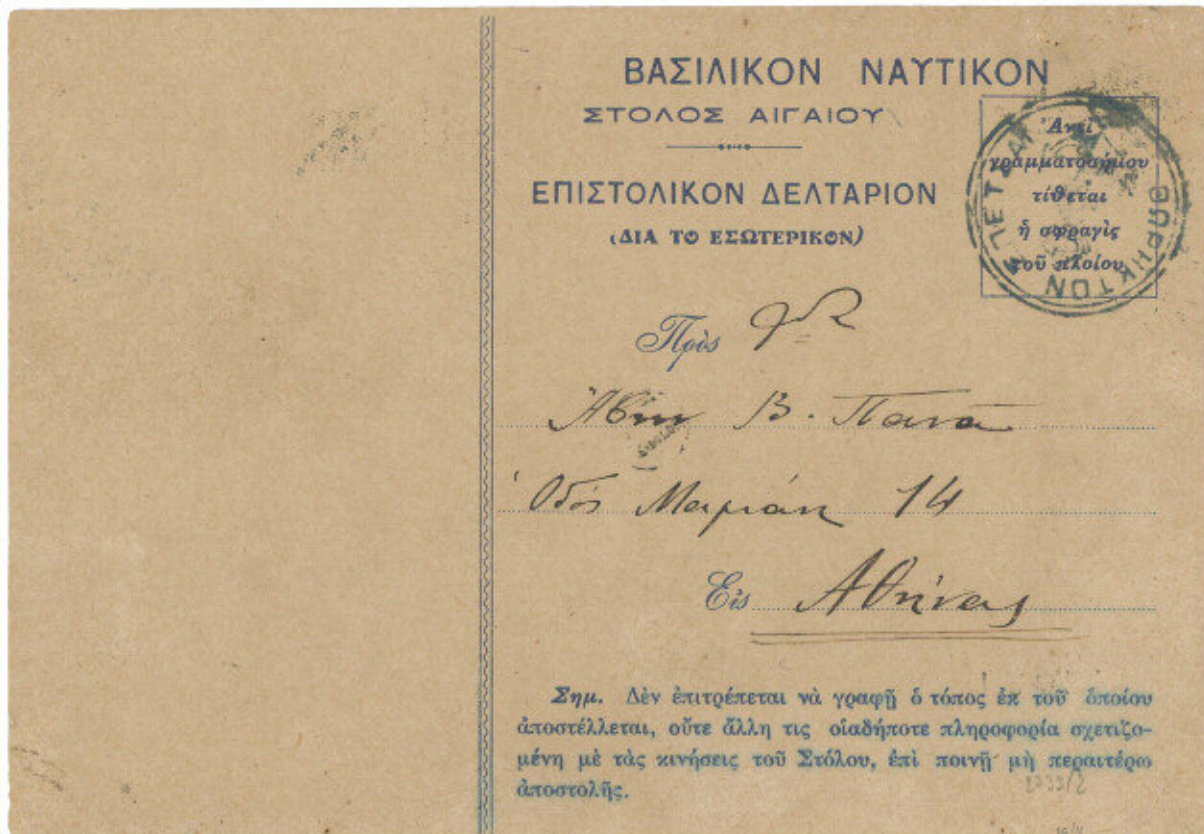 ΒΑΣΙΛΙΚΟΝ ΝΑΥΤΙΚΟΝ
ΣΤΟΛΟΣ ΑΙΓΑΙΟΥ
ΕΠΙΣΤΟΛΙΚΟΝ ΔΕΛΤΑΡΙΟΝ
(ΔΙΑ ΤΟ ΕΣΩΤΕΡΙΚΟΝ)
Ἀντὶ
γραμματοσήμου
τίθεται
ἡ σφραγὶς
τοῦ πλοίου
ΘΩΡΗΚΤΟΝ
Πρὸς
Β. Πανᾶ
Ὁδὸς 14
Εἰς Ἀθήνας
Σημ. Δὲν ἐπιτρέπεται νὰ γραφῇ ὁ τόπος ἐκ τοῦ ὁποίου
ἀποστέλλεται, οὔτε ἄλλη τις οἱαδήποτε πληροφορία σχετιζο-
μένη μὲ τὰς κινήσεις τοῦ Στόλου, ἐπὶ ποινῇ μὴ περαιτέρω
ἀποστολῆς.